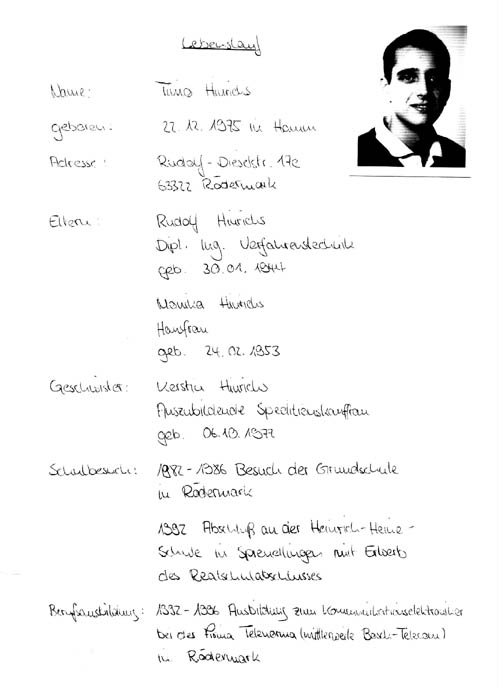 Lebenslauf
Name: Timo Hinrichs
geboren: 22.12.1975 in Hamm
Adresse: Rudolf-Dieselstr. 17c
63322 Rödermark
Eltern: Rudolf Hinrichs
Dipl. Ing. Verfahrenstechnik
geb. 30.01.1944
Monika Hinrichs
Hausfrau
geb. 24.02.1953
Geschwister: Kerstin Hinrichs
Auszubildende Speditionskauffrau
geb. 06.10.1977
Schulbesuch: 1982-1986 Besuch der Grundschule
in Rödermark
1992 Abschluß an der Heinrich-Heine-
Schule in Sprendlingen mit Erwerb
des Realschulabschlusses
Berufsausbildung: 1992-1996 Ausbildung zum Kommunikationselektroniker
bei der Firma Telenorma (mittlerweile Bosch-Telecom)
in Rödermark